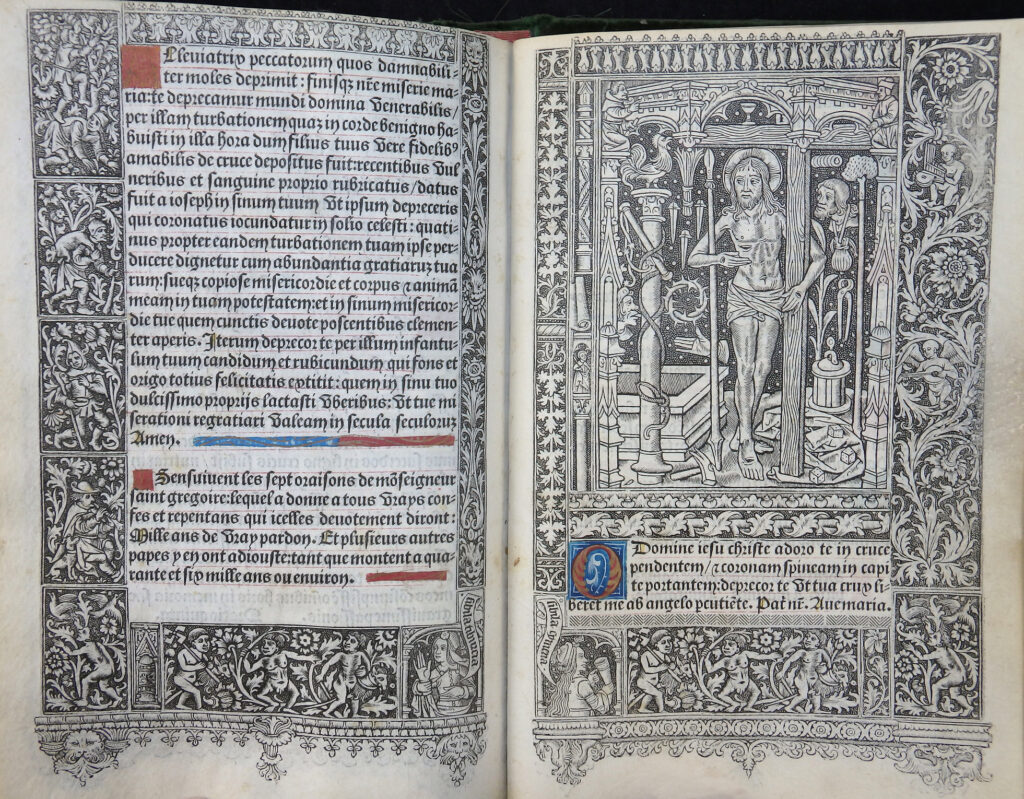 Lleuiatrix peccatorum quos damnabili-
ter moles deprimit: finisqȝ nr̄e miserie ma
ria: te deprecamur mundi domina Venerabilis/
per illam turbationem quaȝ in corde benigno ha
buisti in illa hora dum filius tuus Vere fidelibꝰ
amabilis de cruce depositus fuit: recentibus Vul
neribus et sanguine proprio rubricatus/datus
fuit a ioseph in sinum tuum Vt ipsum depreceris
qui coronatus iocundatur in solio celesti: quati
nus propter eandem turbationem tuam ipse per
ducere dignetur cum abundantia gratiaruȝ tua
rum: sueqȝ copiose misericordie et corpus ⁊ animā
meam in tuam potestatem: et in sinum misericor
die tue quem cunctis deuote poscentibus clemen-
ter aperis. Iterum deprecor te per illum infantu-
lum tuum candidum et rubicundum qui fons et
origo totius felicitatis extitit: quem in sinu tuo
dulcissimo proprijs lactasti Vberibus: Vt tue mi
serationi regratiari Valeam in secula seculoruȝ
Amen.
Sensuiuent les sept oraisons de mōseigneur
saint gregoire: lequel a donne a tous Vrays con-
fes et repentans qui icelles deuotement diront:
Mille ans de Vray pardon. Et plusieurs autres
papes y en ont adiouste: tant que montent a qua
rante et six mille ans ou enuiron.
O Domine iesu christe adoro te in cruce
pendentem/⁊ coronam spineam in capi
te portantem: deprecor te Vt tua crux li-
beret me ab angelo pcutiēte. Pat̄ nr̄. Aue maria.